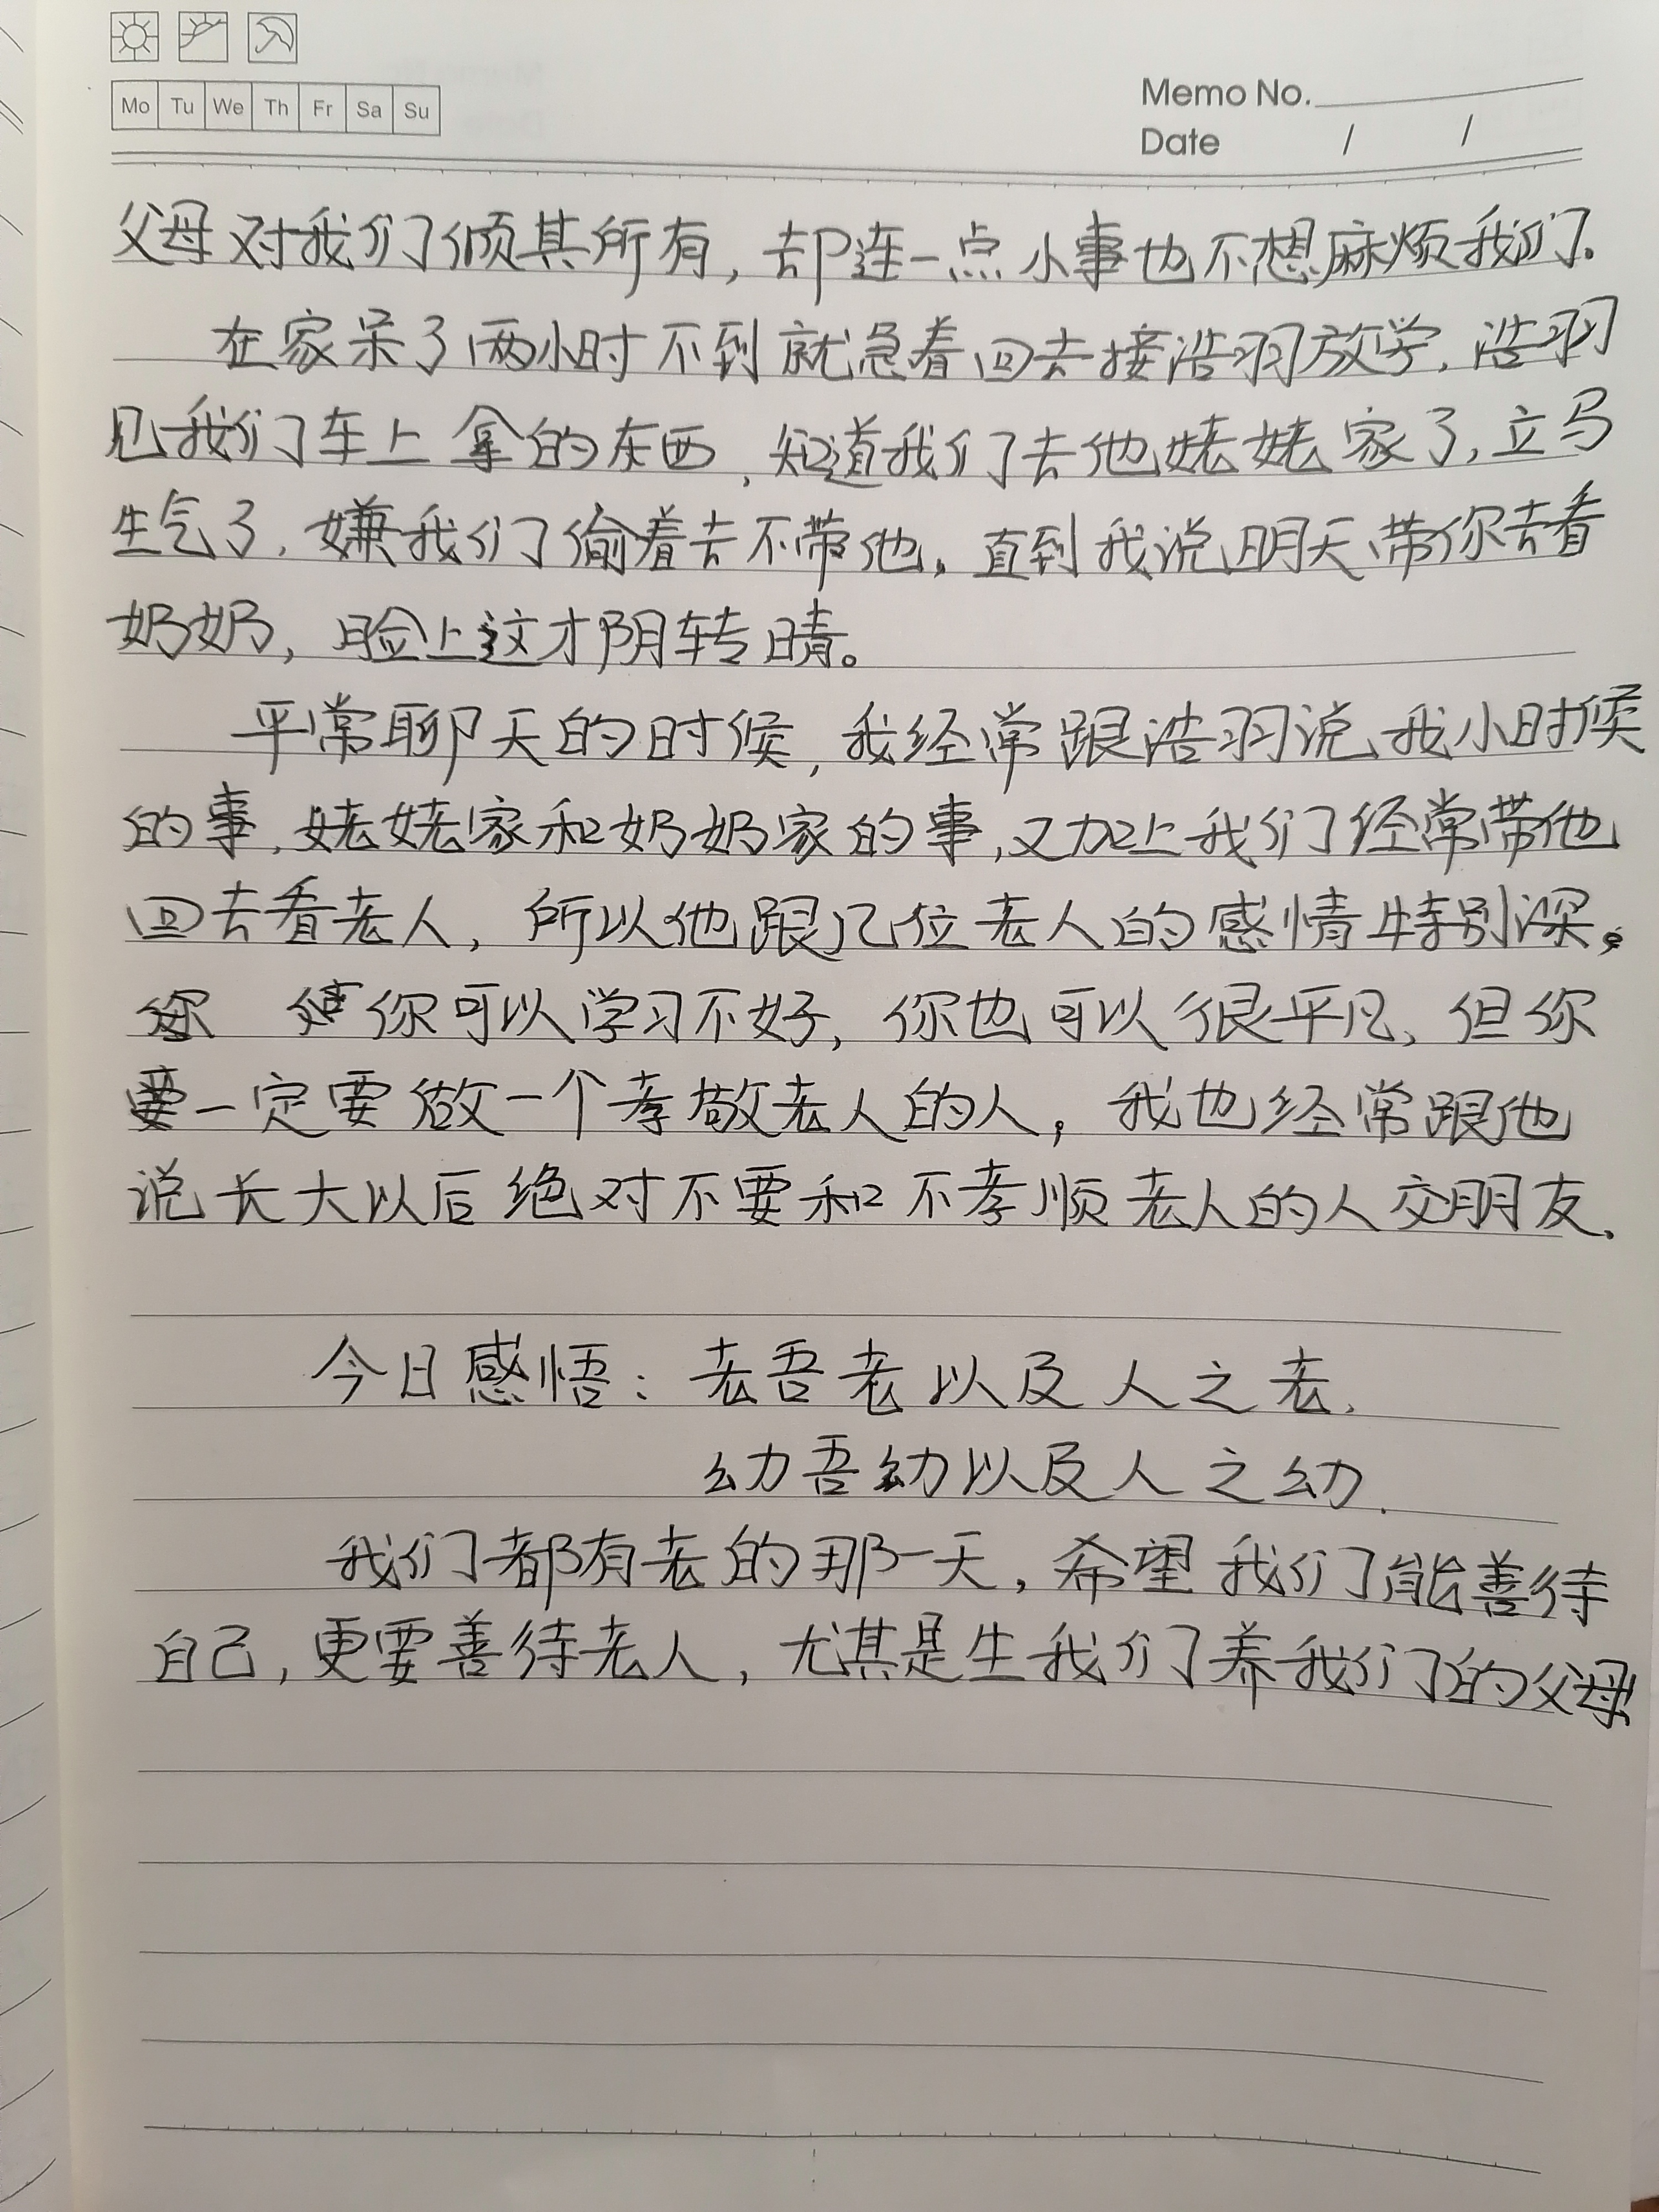 Mo Tu We Th Fr Sa Su
Memo No.
Date / /
父母对我们倾其所有，却连一点小事也不想麻烦我们.
在家呆了两小时不到就急着回去接浩羽放学，浩羽
见我们车上拿的东西，知道我们去他姥姥家了，立马
生气了，嫌我们偷着去不带他。直到我说明天带你去看
奶奶，脸上这才阴转晴。
平常聊天的时候，我经常跟浩羽说我小时候
的事，姥姥家和奶奶家的事，又加上我们经常带他
回去看老人，所以他跟几位老人的感情特别深。
你可以学习不好，你也可以很平凡、但你
一定要做一个孝敬老人的人，我也经常跟他
说长大以后绝对不要和不孝顺老人的人交朋友.
今日感悟：老吾老以及人之老，
幼吾幼以及人之幼.
我们都有老的那一天，希望我们能善待
自己，更要善待老人，尤其是生我们养我们的父母!